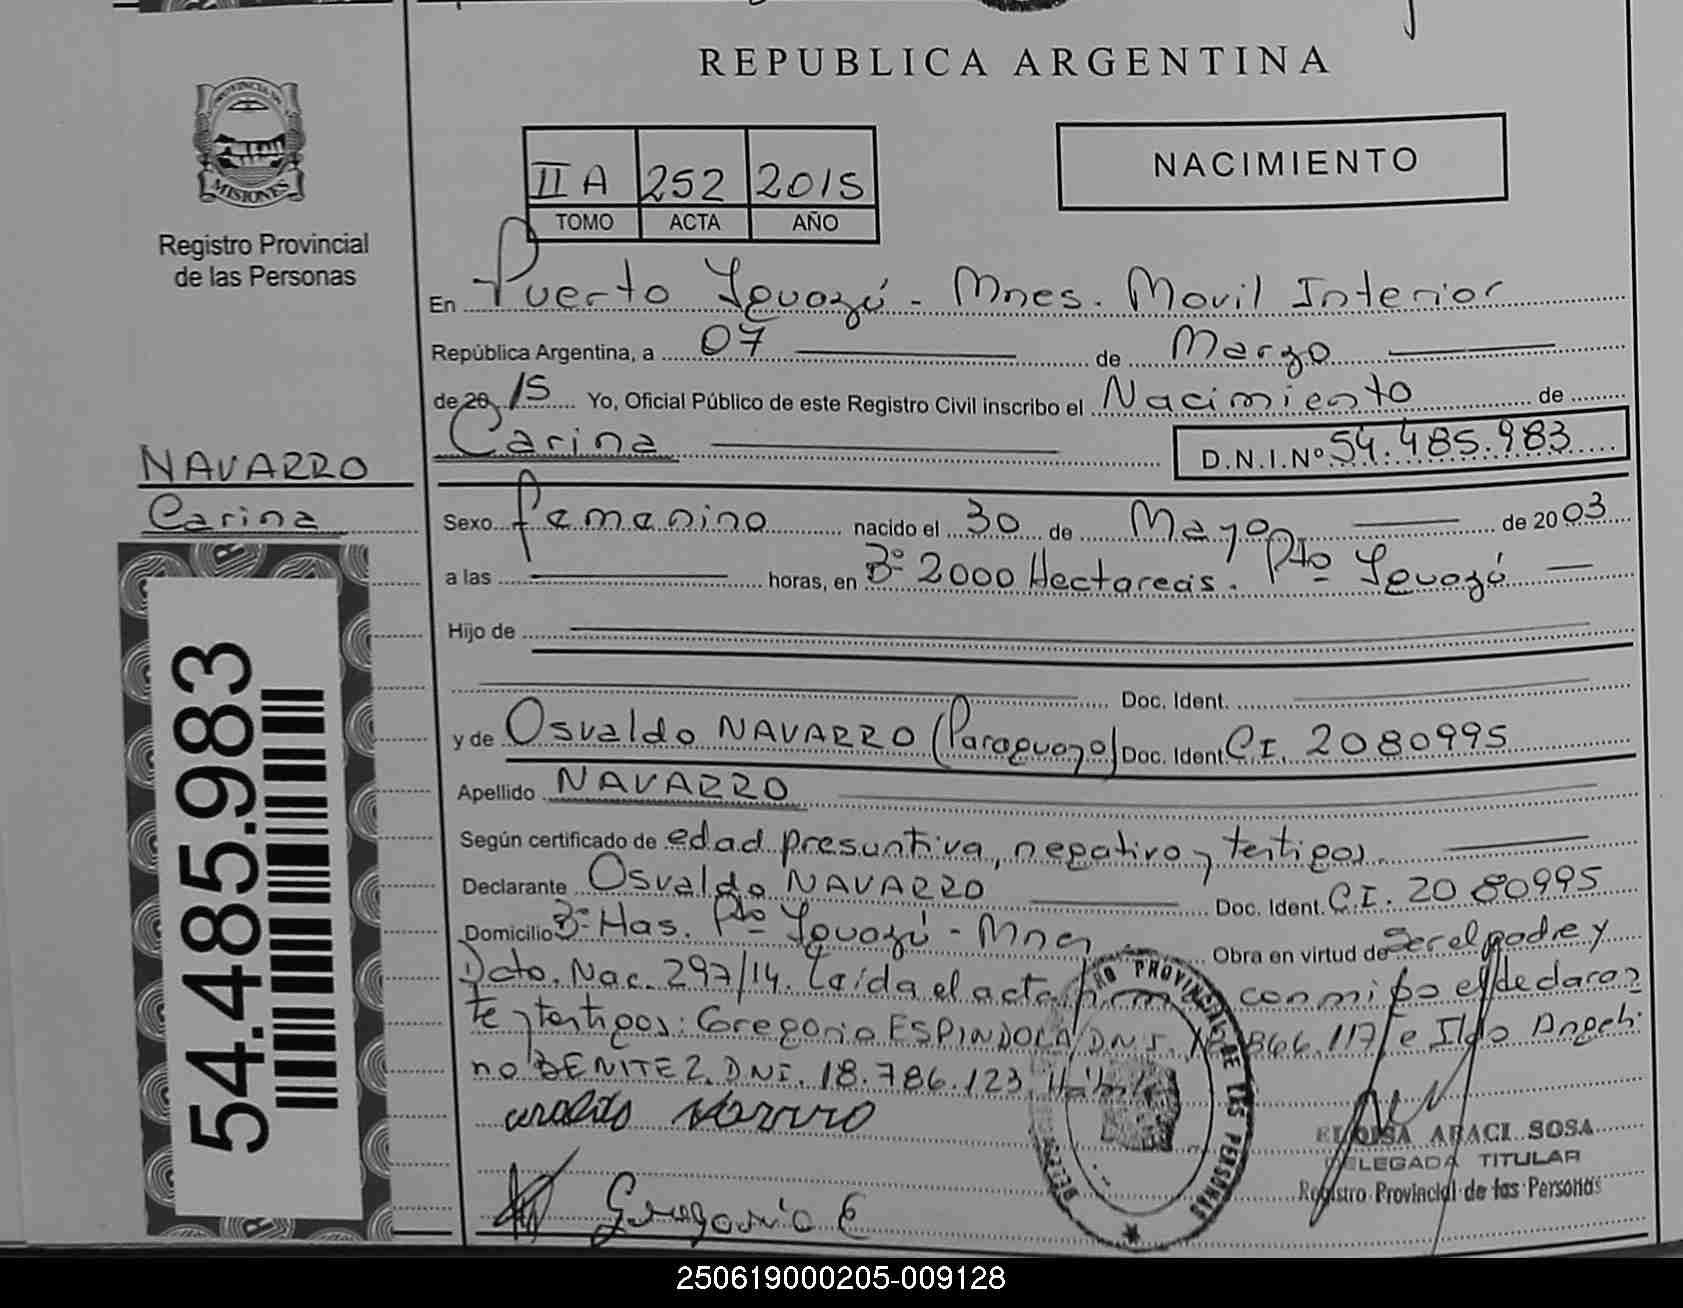 REPUBLICA ARGENTINA
PROVINCIA DE
MISIONES
Registro Provincial
de las Personas
II A 252 2015
TOMO ACTA AÑO
NACIMIENTO
En Puerto Iguazú - Mnes. Movil Interior
República Argentina, a 07 de Marzo
de 2015 Yo, Oficial Público de este Registro Civil inscribo el Nacimiento de
Carina D.N.I.Nº 54.485.983
NAVARRO
Carina
Sexo femenino nacido el 30 de Mayo de 2003
a las horas, en Bº 2000 Hectareas. Pto Iguazú
Hijo de
Doc. Ident.
y de Osvaldo NAVARRO (Paraguayo) Doc. Ident. C.I. 2080995
Apellido NAVARRO
Según certificado de edad presuntiva, negativo y testigos.
Declarante Osvaldo NAVARRO Doc. Ident. C.I. 2080995
Domicilio Bº Has. Pto Iguazú - Mnes Obra en virtud de ser el padre y
Dcto. Nac. 297/14. Leída el acta firma conmigo el declaran
te y testigos: Gregorio ESPINDOLA DNI. 866.117 e Ildo Angeli
no BENITEZ. DNI. 18.786.123
Navarro
Gregorio E
PROVINCIAL DE LAS PERSONAS
ELOISA ARACI SOSA
DELEGADA TITULAR
Registro Provincial de las Personas
54.485.983
250619000205-009128